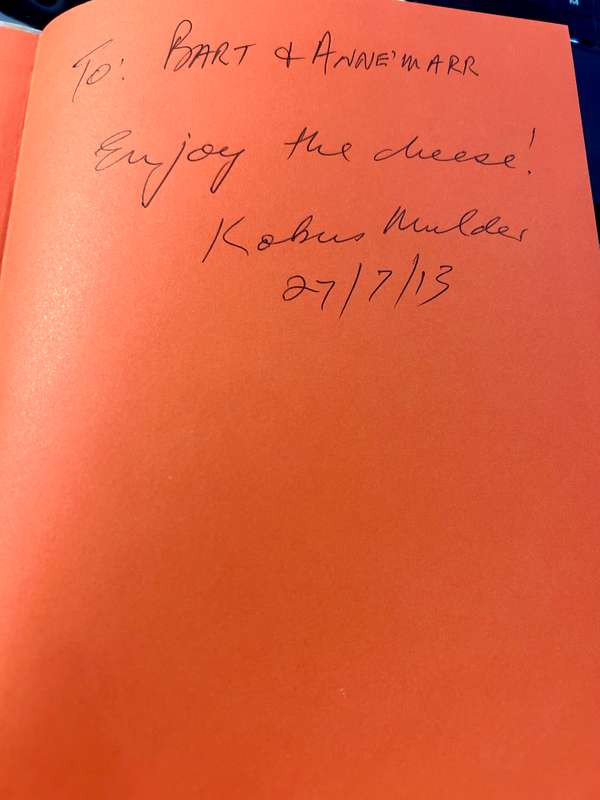 To: BART & ANNE'MARR
Enjoy the cheese!
Kobus Mulder
27/7/13